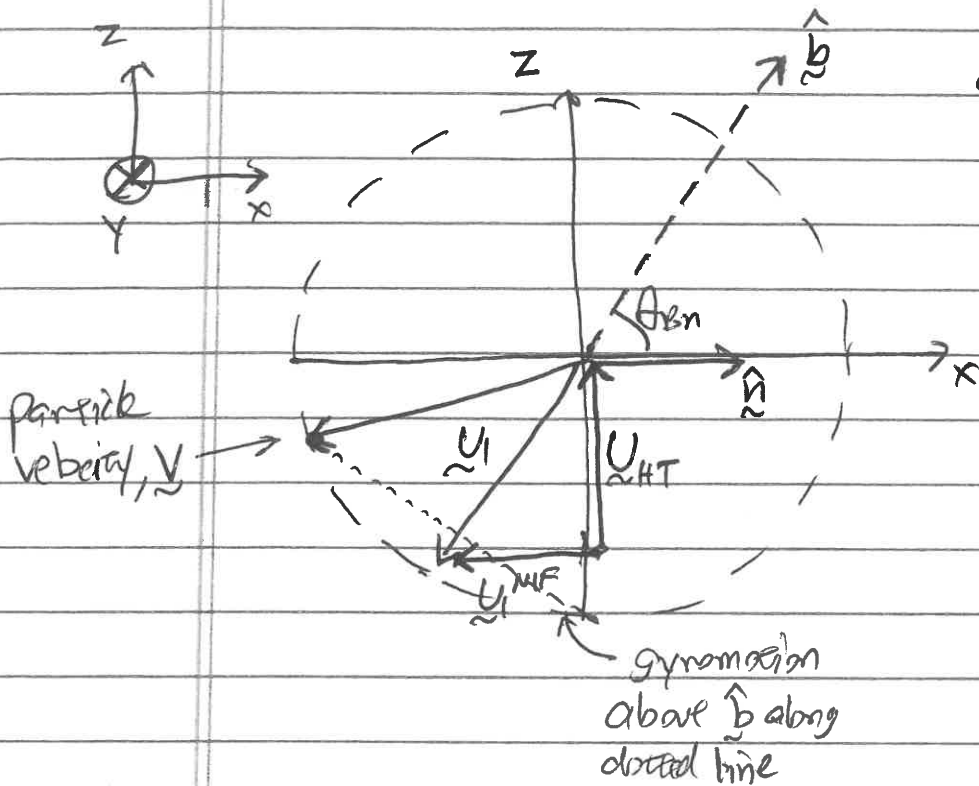 Z
Z
b̂
Y
x
θBn
x
n̂
particle
velocity, V
U1
UHT
U1 NIF
gyromotion
about b̂ along
dotted line